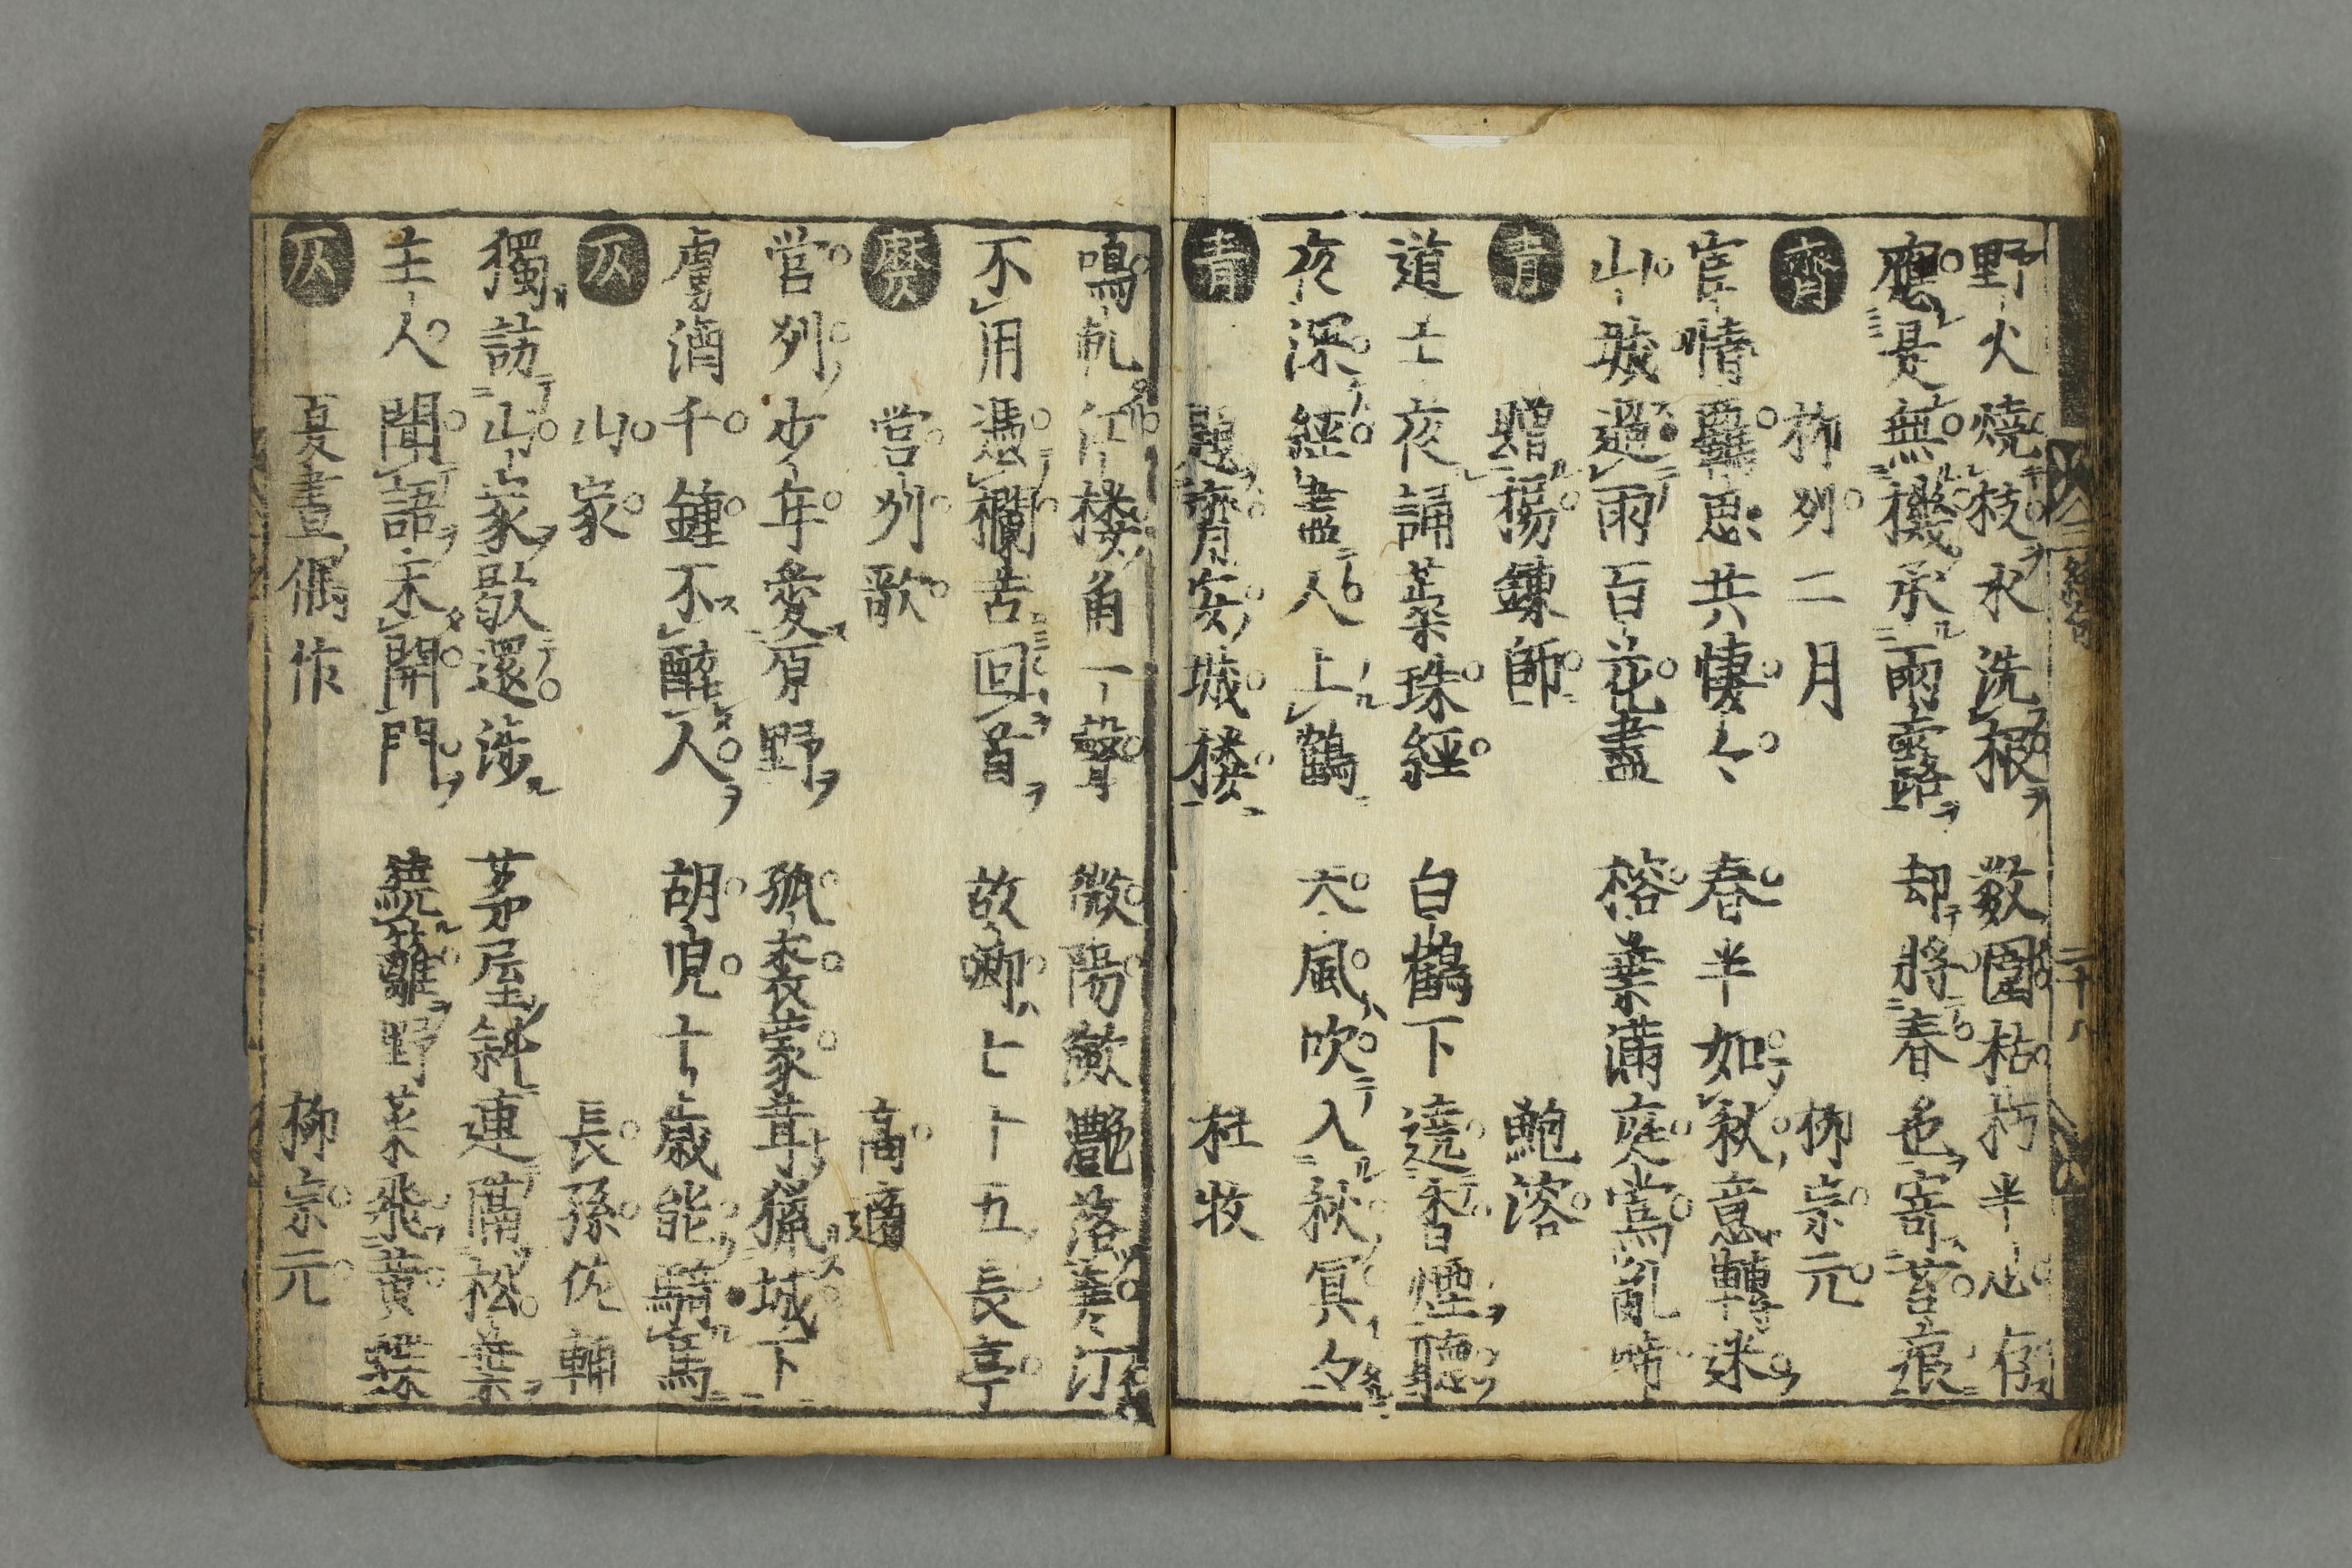 野火燒枝水洗根 数圍枯朽半心存
應是無機承雨露 却將春色寄苔痕
齊 柳州二月 柳宗元
宦情羈思共悽々 春半如秋意轉迷
山城過雨百花盡 榕葉滿庭鶯亂啼
青 贈楊鍊師 鮑溶
道士夜誦蕊珠經 白鶴下遶香煙聽
夜深經盡人上鶴 天風吹入秋冥々
青 題齊安城楼 杜牧
鳴軋江楼角一聲 微陽瀲灎落寒汀
不用憑欄苦回首 故鄉七十五長亭
營州歌 高適
營州少年愛原野 狐裘蒙茸獵城下
虜酒千鍾不醉人 胡兒十歲能騎馬
仄 山家 長孫佐輔
獨訪山家歇還涉 茅屋斜連隔松葉
主人聞語未開門 繞籬野菜飛黃蝶
仄 夏晝偶作 柳宗元
二十八